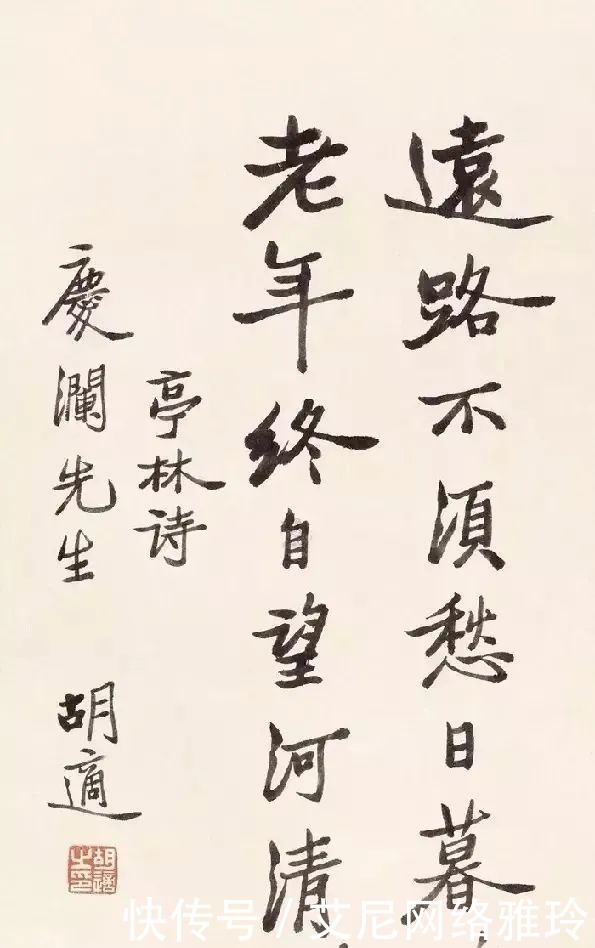 遠路不須愁日暮
老年終自望河清
亭林诗
慶瀾先生 胡適
胡適之印
快传号/艾尼网络雅玲